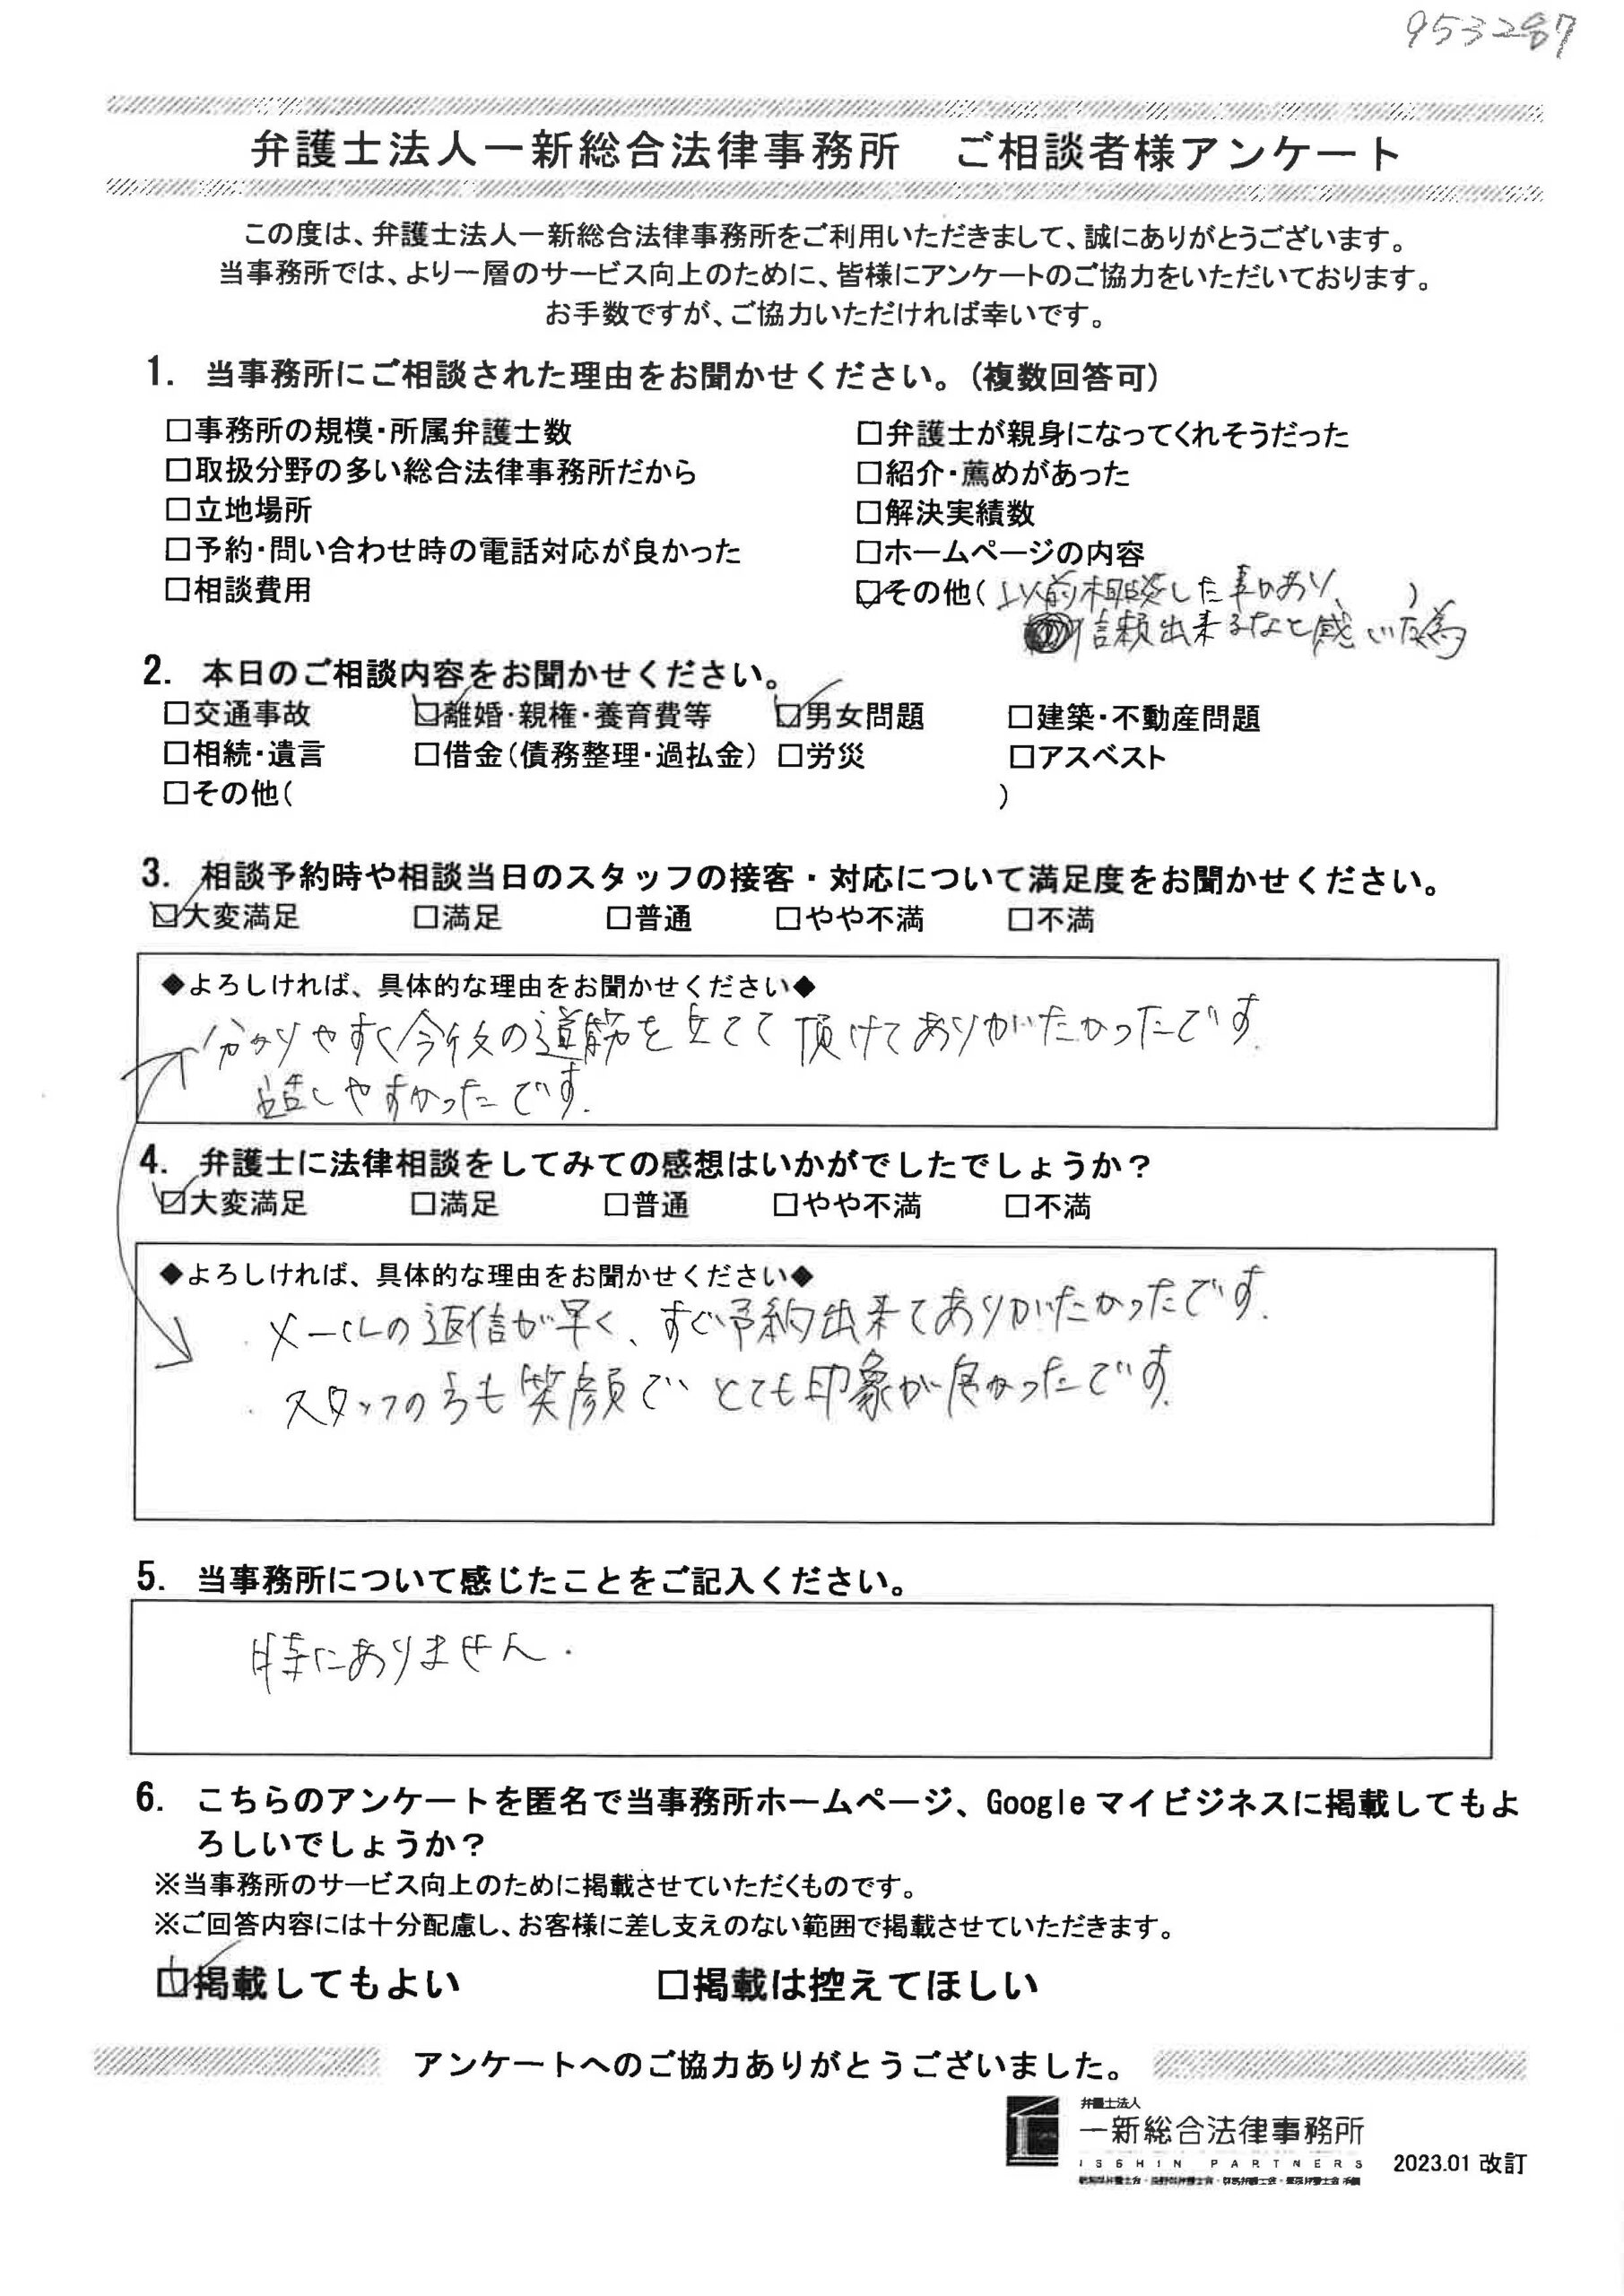 953287
弁護士法人一新総合法律事務所　ご相談者様アンケート
この度は、弁護士法人一新総合法律事務所をご利用いただきまして、誠にありがとうございます。
当事務所では、より一層のサービス向上のために、皆様にアンケートのご協力をいただいております。
お手数ですが、ご協力いただければ幸いです。
1.　当事務所にご相談された理由をお聞かせください。（複数回答可）
□事務所の規模・所属弁護士数　□弁護士が親身になってくれそうだった
□取扱分野の多い総合法律事務所だから　□紹介・薦めがあった
□立地場所　□解決実績数
□予約・問い合わせ時の電話対応が良かった　□ホームページの内容
□相談費用　☑その他（以前相談した事があり、）
信頼出来るなと感じた為
2.　本日のご相談内容をお聞かせください。
□交通事故　☑離婚・親権・養育費等　☑男女問題　□建築・不動産問題
□相続・遺言　□借金（債務整理・過払金）　□労災　□アスベスト
□その他（　）
3.　相談予約時や相談当日のスタッフの接客・対応について満足度をお聞かせください。
☑大変満足　□満足　□普通　□やや不満　□不満
◆よろしければ、具体的な理由をお聞かせください◆
分かりやすく今後の道筋を立てて頂けてありがたかったです.
話しやすかったです.
4.　弁護士に法律相談をしてみての感想はいかがでしたでしょうか？
☑大変満足　□満足　□普通　□やや不満　□不満
◆よろしければ、具体的な理由をお聞かせください◆
・メールの返信が早く、すぐ予約出来てありがたかったです.
・スタッフの方も笑顔でとても印象が良かったです.
5.　当事務所について感じたことをご記入ください。
特にありません.
6.　こちらのアンケートを匿名で当事務所ホームページ、Google マイビジネスに掲載してもよ
ろしいでしょうか？
※当事務所のサービス向上のために掲載させていただくものです。
※ご回答内容には十分配慮し、お客様に差し支えのない範囲で掲載させていただきます。
☑掲載してもよい　□掲載は控えてほしい
アンケートへのご協力ありがとうございました。
弁護士法人
一新総合法律事務所
ISSHIN PARTNERS
2023.01 改訂